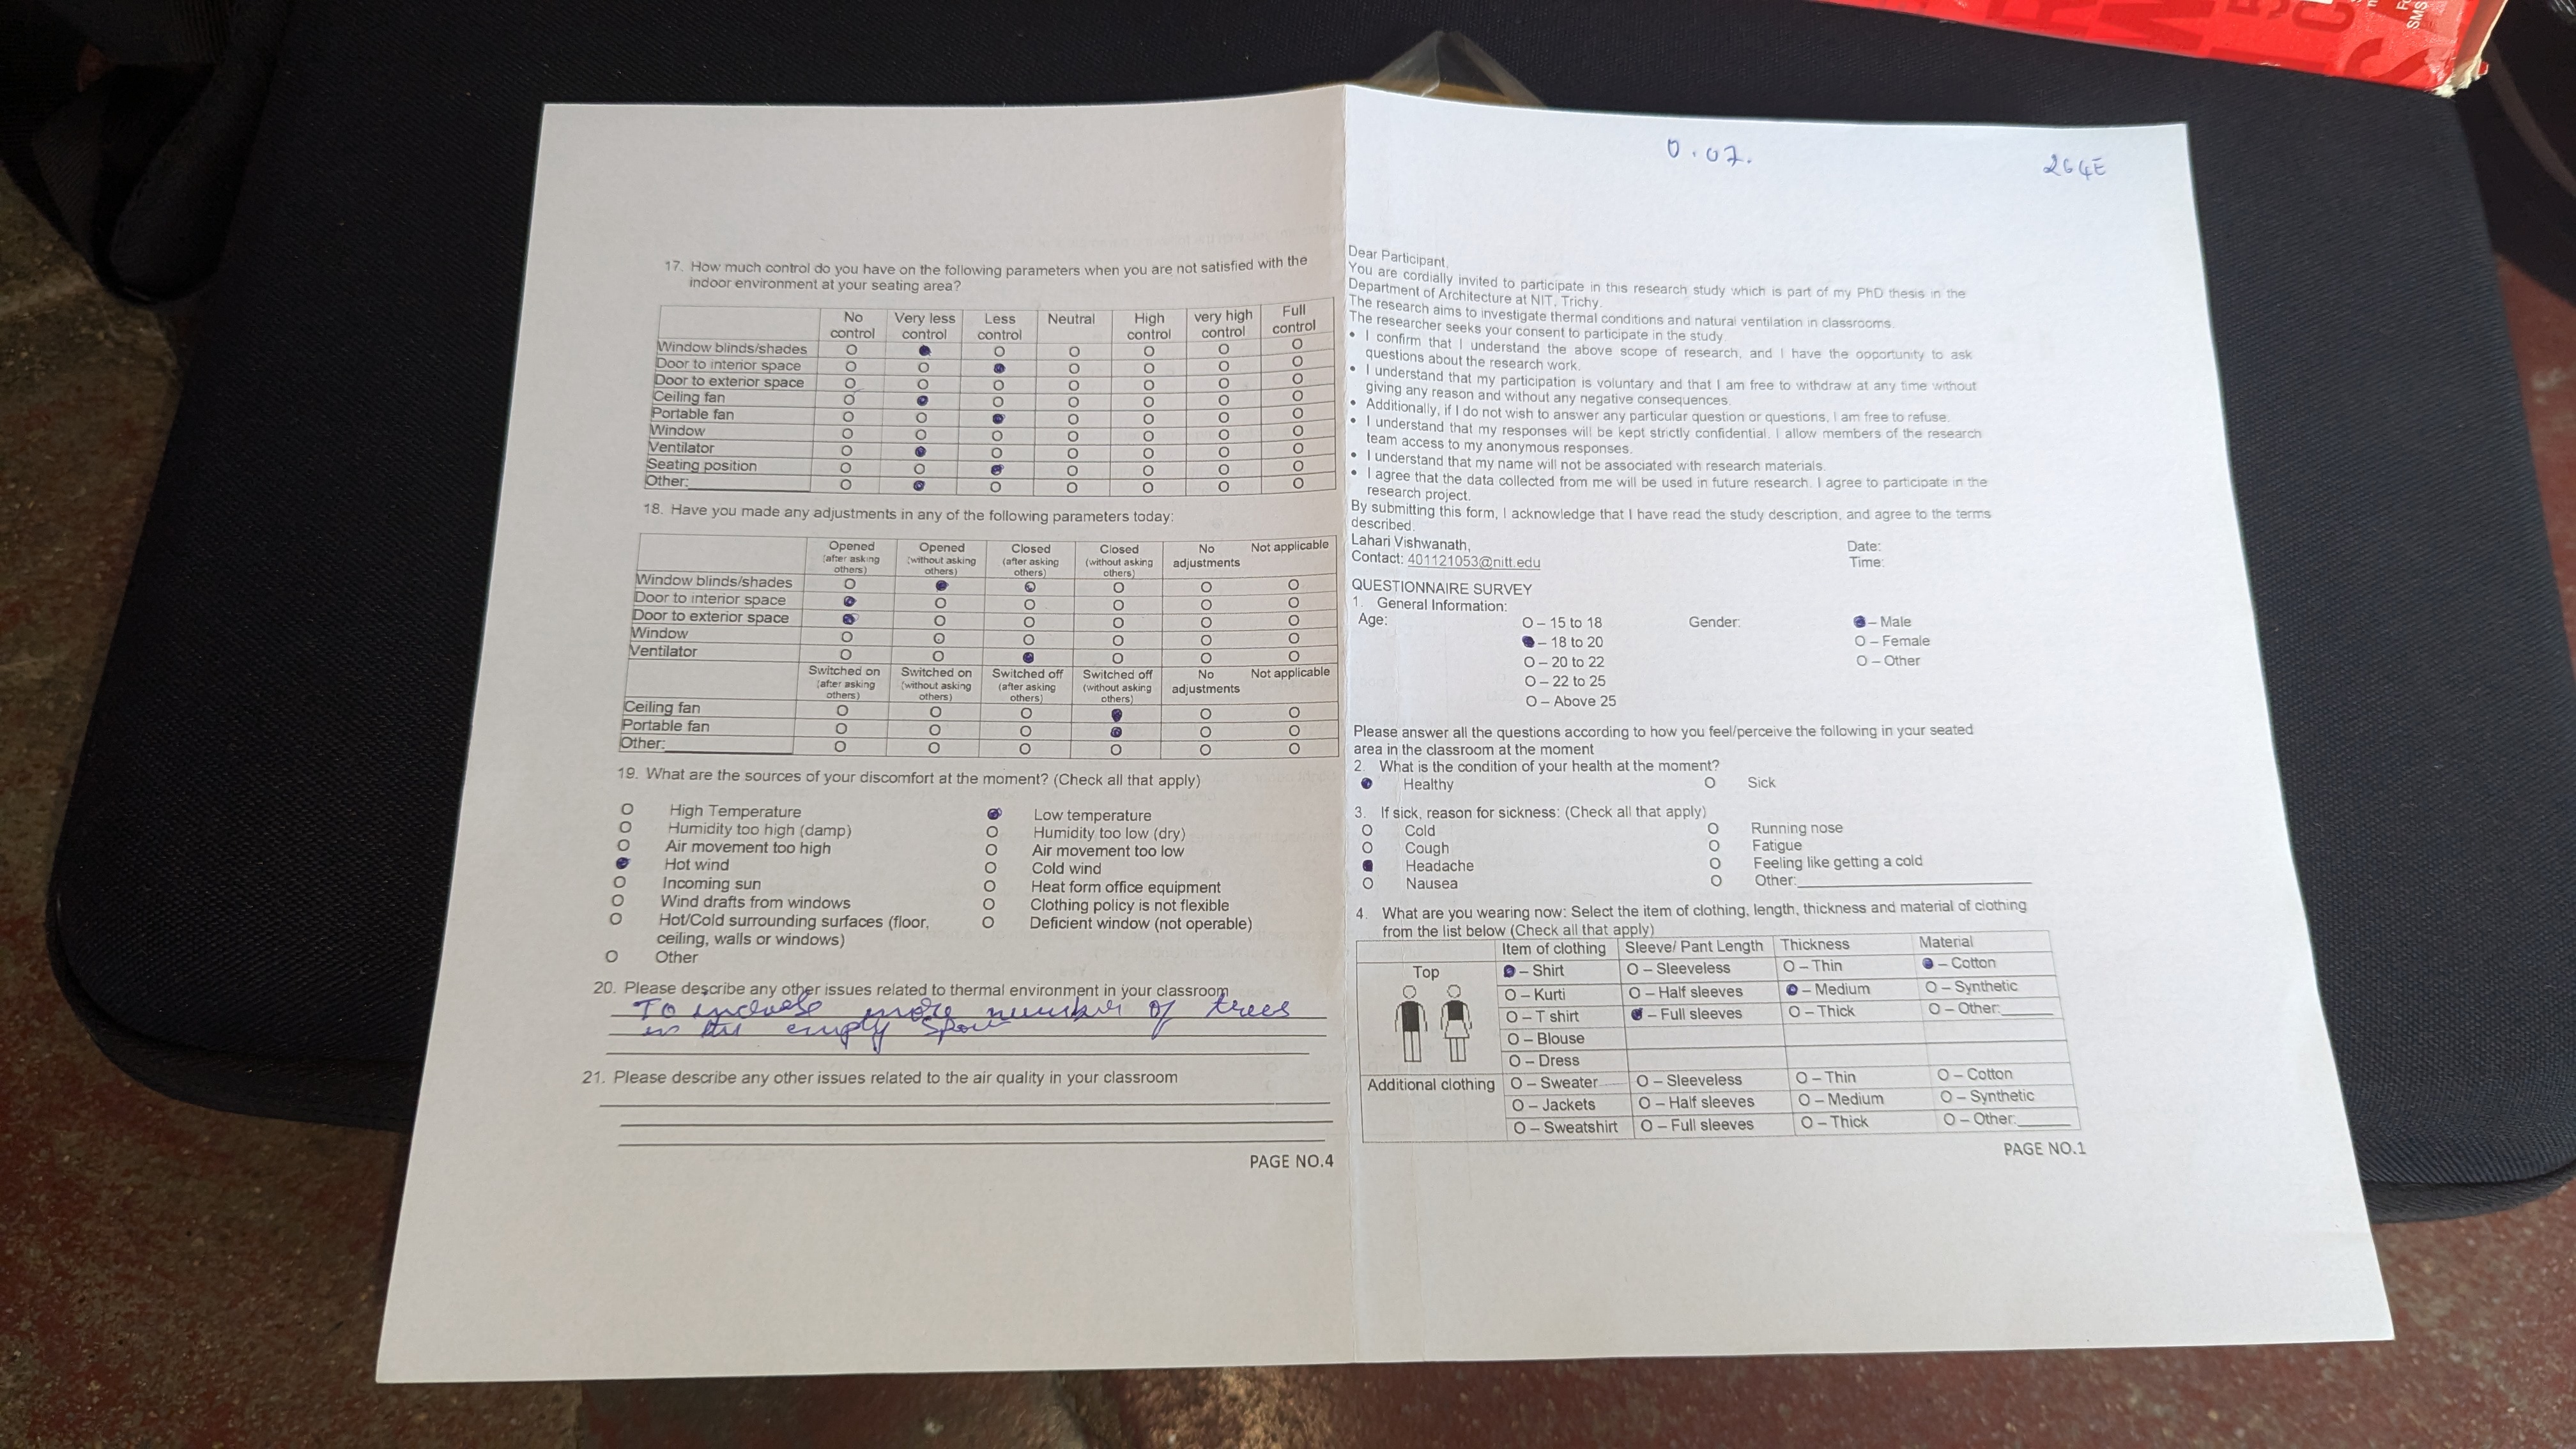 17. How much control do you have on the following parameters when you are not satisfied with the
indoor environment at your seating area?
No control Very less control Less control Neutral High control very high control Full control
Window blinds/shades O ● O O O O O
Door to interior space O O ● O O O O
Door to exterior space O O O O O O O
Ceiling fan O ● O O O O O
Portable fan O O ● O O O O
Window O O O O O O O
Ventilator O ● O O O O O
Seating position O O ● O O O O
Other:________ O ● O O O O O
18. Have you made any adjustments in any of the following parameters today:
Opened (after asking others) Opened (without asking others) Closed (after asking others) Closed (without asking others) No adjustments Not applicable
Window blinds/shades O ● O O O O
Door to interior space ● O O O O O
Door to exterior space ● O O O O O
Window O O O O O O
Ventilator O O ● O O O
Switched on (after asking others) Switched on (without asking others) Switched off (after asking others) Switched off (without asking others) No adjustments Not applicable
Ceiling fan O O O ● O O
Portable fan O O O ● O O
Other:________ O O O O O O
19. What are the sources of your discomfort at the moment? (Check all that apply)
O High Temperature ● Low temperature
O Humidity too high (damp) O Humidity too low (dry)
O Air movement too high O Air movement too low
● Hot wind O Cold wind
O Incoming sun O Heat form office equipment
O Wind drafts from windows O Clothing policy is not flexible
O Hot/Cold surrounding surfaces (floor, O Deficient window (not operable)
ceiling, walls or windows)
O Other
20. Please describe any other issues related to thermal environment in your classroom
To increase more number of trees
in the empty
21. Please describe any other issues related to the air quality in your classroom
PAGE NO.4
0.07.
264E
Dear Participant,
You are cordially invited to participate in this research study which is part of my PhD thesis in the
Department of Architecture at NIT, Trichy.
The research aims to investigate thermal conditions and natural ventilation in classrooms.
The researcher seeks your consent to participate in the study.
• I confirm that I understand the above scope of research, and I have the opportunity to ask
questions about the research work.
• I understand that my participation is voluntary and that I am free to withdraw at any time without
giving any reason and without any negative consequences.
• Additionally, if I do not wish to answer any particular question or questions, I am free to refuse.
• I understand that my responses will be kept strictly confidential. I allow members of the research
team access to my anonymous responses.
• I understand that my name will not be associated with research materials.
• I agree that the data collected from me will be used in future research. I agree to participate in the
research project.
By submitting this form, I acknowledge that I have read the study description, and agree to the terms
described.
Lahari Vishwanath, Date:
Contact: 401121053@nitt.edu Time:
QUESTIONNAIRE SURVEY
1. General Information:
Age: O – 15 to 18 Gender: ● – Male
● – 18 to 20 O – Female
O – 20 to 22 O – Other
O – 22 to 25
O – Above 25
Please answer all the questions according to how you feel/perceive the following in your seated
area in the classroom at the moment
2. What is the condition of your health at the moment?
● Healthy O Sick
3. If sick, reason for sickness: (Check all that apply)
O Cold O Running nose
O Cough O Fatigue
● Headache O Feeling like getting a cold
O Nausea O Other:________
4. What are you wearing now: Select the item of clothing, length, thickness and material of clothing
from the list below (Check all that apply)
Item of clothing Sleeve/ Pant Length Thickness Material
Top ● – Shirt O – Sleeveless O – Thin ● – Cotton
O – Kurti O – Half sleeves ● – Medium O – Synthetic
O – T shirt ● – Full sleeves O – Thick O – Other:______
O – Blouse
O – Dress
Additional clothing O – Sweater O – Sleeveless O – Thin O – Cotton
O – Jackets O – Half sleeves O – Medium O – Synthetic
O – Sweatshirt O – Full sleeves O – Thick O – Other:______
PAGE NO.1
SMS